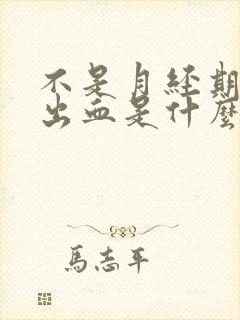 不是月经期
出血是什麼
馬志平